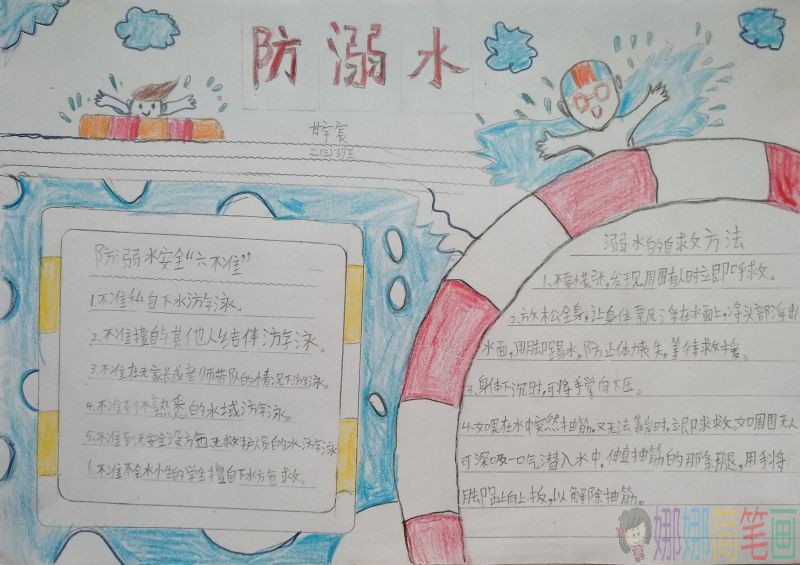 防溺水
二(三)班
防溺水安全“六不准”
1.不准私自下水游泳。
2.不准擅自与其他人结伴游泳。
3.不准在无家长或老师带队的情况下游泳。
4.不准到不熟悉的水域游泳。
5.不准到无安全设施、无救护人员的水游泳
不准不会水性的学生擅自下水施救。
溺水的自救方法
1.不要慌张,发现周围有人时立即呼救。
2.放松全身,让身体飘浮在水面上,将头部浮出
水面,用脚踢水,防止体力丧失,等待救援。
3.身体下沉时,可将手掌向下压。
4.如果在水中突然抽筋,又无法靠岸时,立即求救,如周围无人
可深吸一口气潜入水中,伸直抽筋的那条腿,用手将
脚趾向上扳,以解除抽筋。
娜娜简笔画